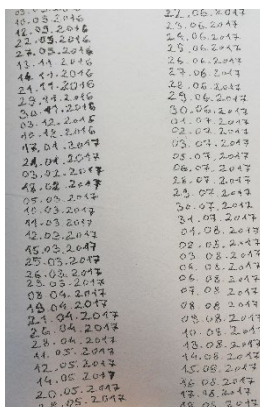 03.09.2016
10.09.2016
12.09.2016
22.09.2016
27.09.2016
13.11.2016
14.11.2016
21.11.2016
29.11.2016
30.11.2016
03.12.2016
10.12.2016
17.01.2017
24.01.2017
03.02.2017
18.02.2017
05.03.2017
10.03.2017
11.03.2017
12.03.2017
15.03.2017
25.03.2017
26.03.2017
29.03.2017
08.04.2017
19.04.2017
21.04.2017
26.04.2017
28.04.2017
11.05.2017
12.05.2017
14.05.2017
20.05.2017
28.05.2017
22.06.2017
23.06.2017
24.06.2017
25.06.2017
26.06.2017
27.06.2017
28.06.2017
29.06.2017
30.06.2017
01.07.2017
02.07.2017
03.07.2017
05.07.2017
06.07.2017
28.07.2017
29.07.2017
30.07.2017
31.07.2017
01.08.2017
02.08.2017
03.08.2017
05.08.2017
06.08.2017
07.08.2017
08.08.2017
09.08.2017
10.08.2017
13.08.2017
14.08.2017
15.08.2017
16.08.2017
17.08.2017
18.08.2017